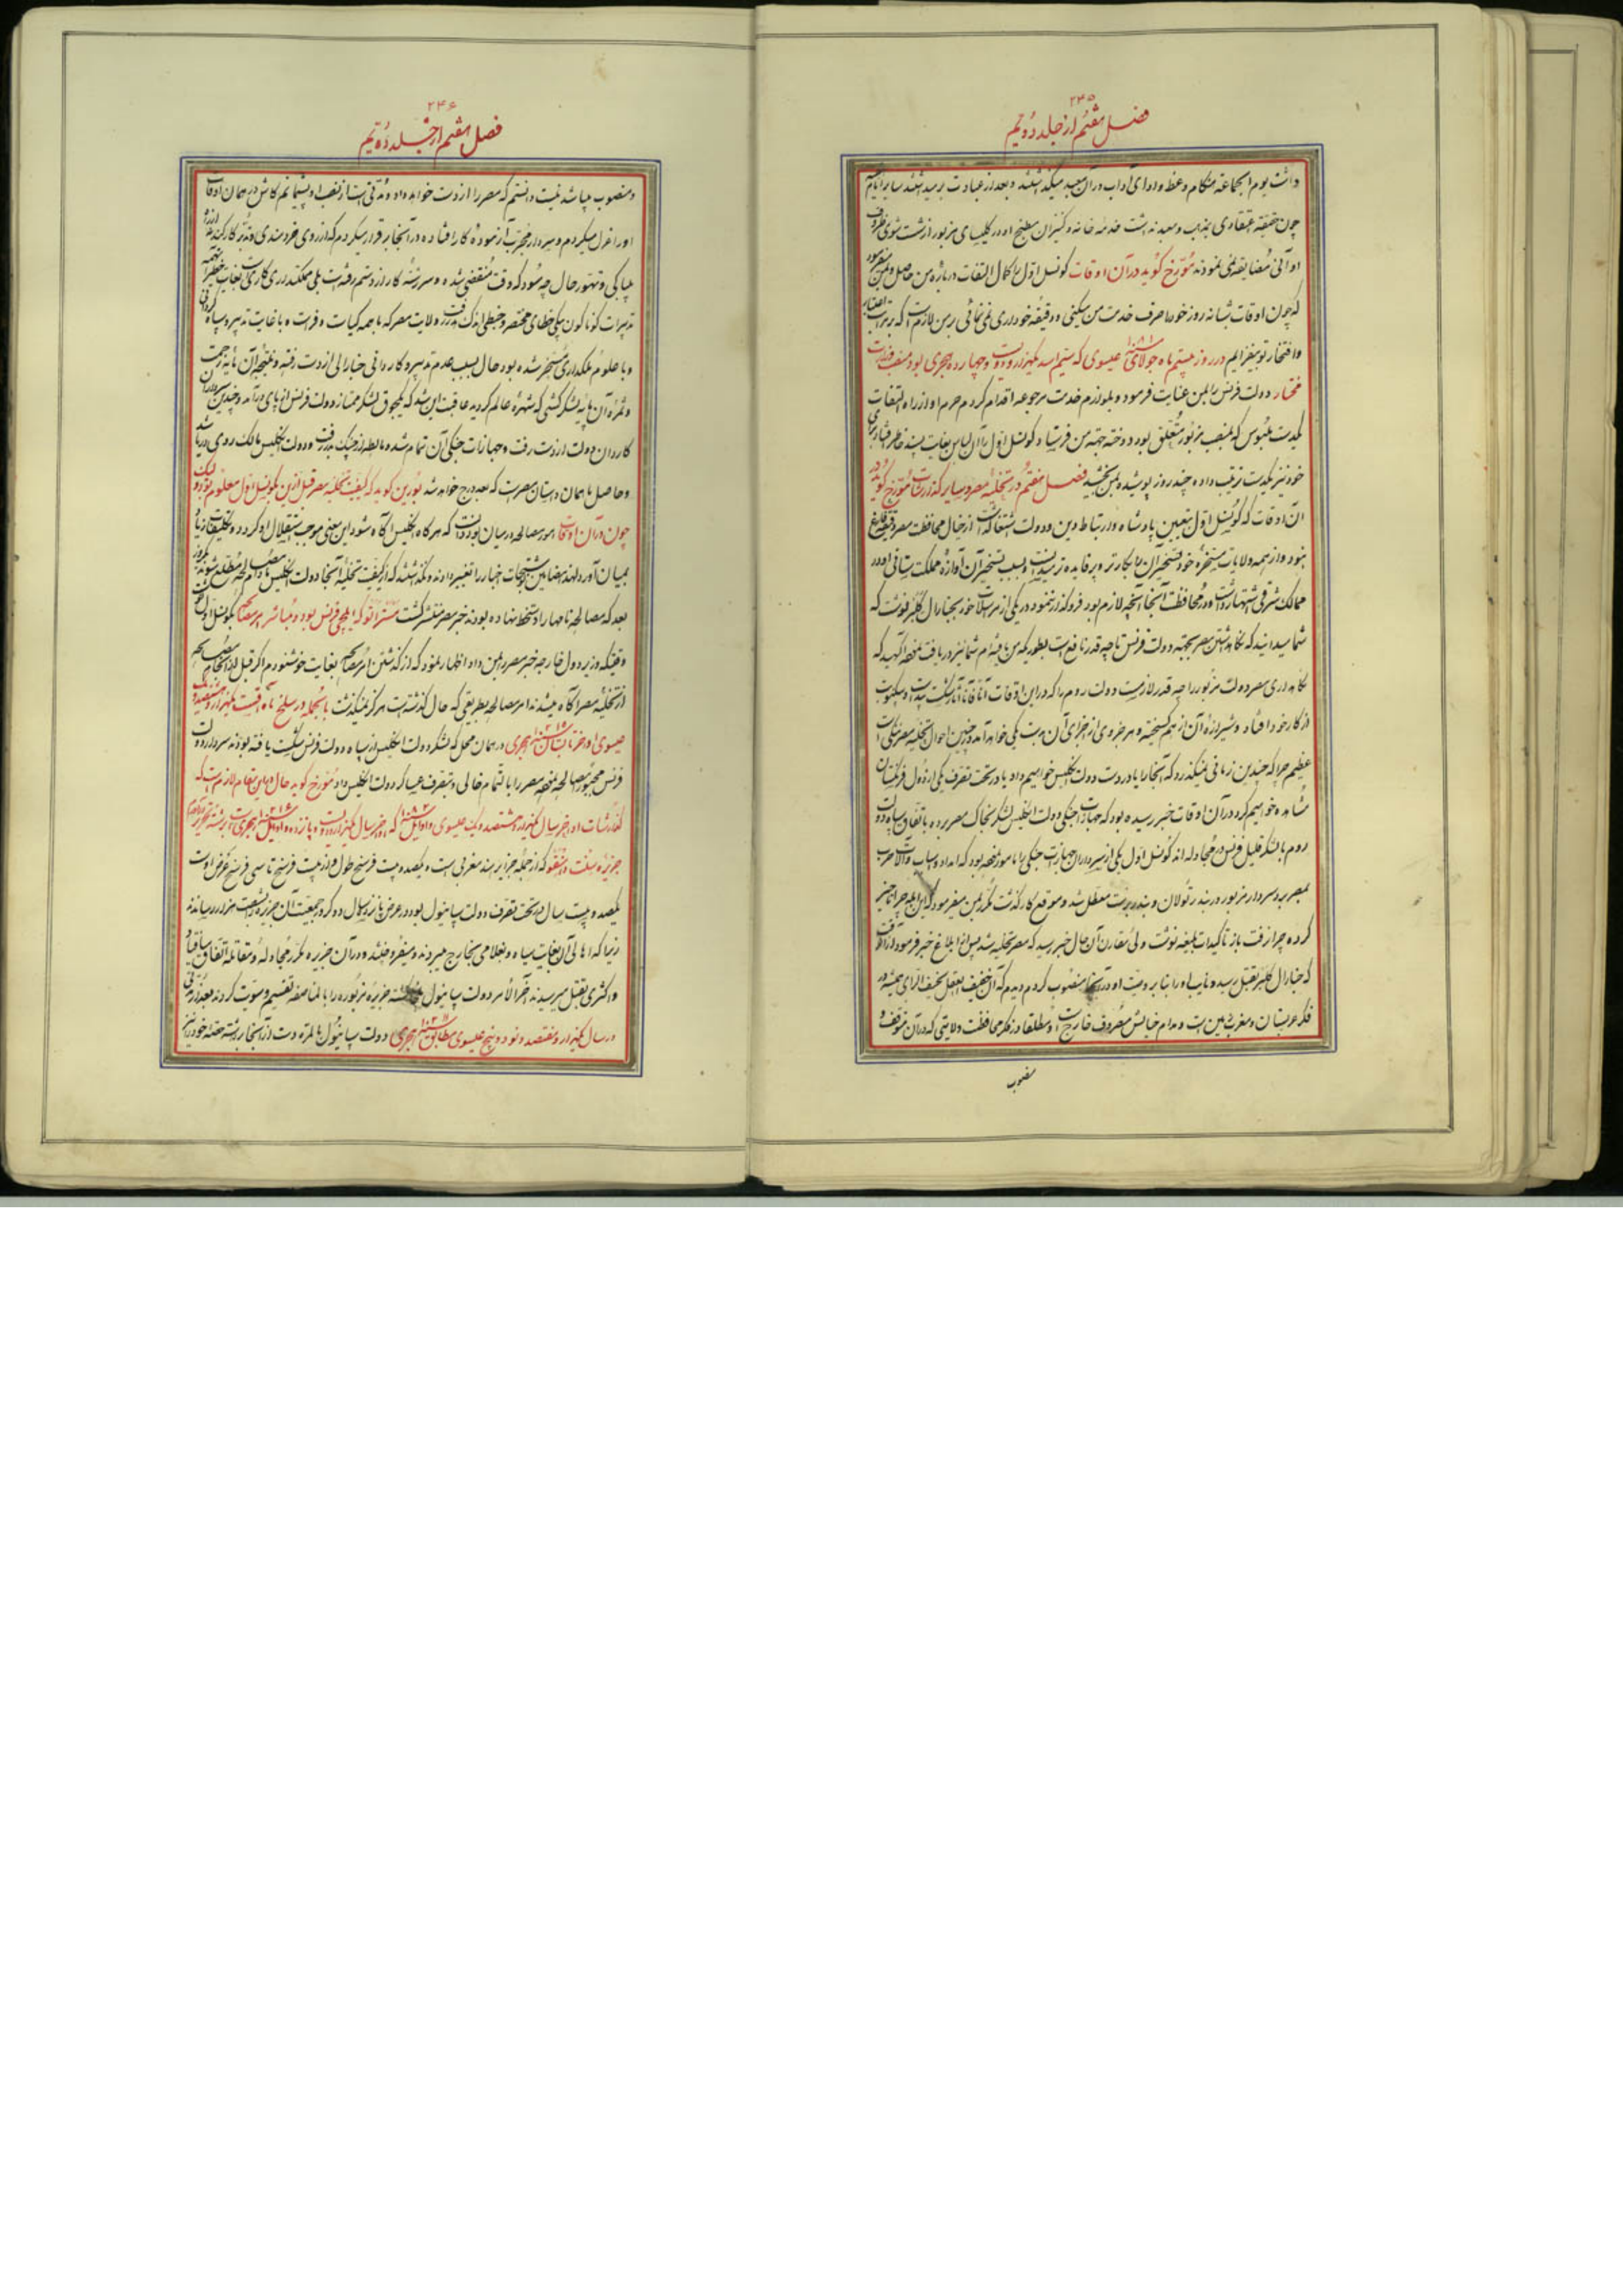 ۲۴۵
فصل هفتم از جلد دویم
داشت یوم الجماعة هنگام وعظ و ادای آداب در آن معبد میکذاشتند و بعد از عبادت بر میداشتند سایر ایام
چون حقیقة اعتقادی بمذهب و معبد نداشت خدمه خانه و کنیزان مطبخ او در کلیسای مزبور از شست شوی ظروف
اوانی مضایقه نمی نمودند مورخ کوید در آن اوقات کونسل اول را کمال التفات درباره من حاصل و بمن میفرمود
که چون اوقات شبانه روز خود را صرف خدمت من میکنی و دقیقه خودداری نمی نمائی بر من لازم است که بر مراتب اعتبار
و افتخار تو بیفزایم در روز بیستم ماه جولای عیسوی که سنه یکهزار و دویست و چهارده هجری بود منصب وزارت
مختار دولت فرنس را بمن عنایت فرمود و بلوازم خدمت مرجوعه اقدام کردم و از راه التفات
یکدست ملبوس که بمنصب مزبور متعلق بود دوخته بجهة من فرستاد و کونسل اول را آن لباس بغایت پسند خاطر افتاد برای
خود نیز یکدست ترتیب داده چند روز پوشیده بمن بخشید فصل هفتم در تخلیه مصر و سایر کذارشات مورخ کوید در
آن اوقات که کونسل اول بتعیین پادشاه و ارتباط دین و دولت اشتغال داشت از خیال محافظت مصر دقیقه فارغ
نبود و از همه ولایات مسخره خود تسخیر آن را بکارتر و پر فایده تر میدانست و بسبب تسخیر آن آوازه مملکت ستانی او در
ممالک شرقی اشتهار داشت و در محافظت آنجا آنچه لازم بود فروکذار ننمود در یکی از مراسلات خود بجنارال کلبر نوشت که
شما میدانید که نکاهداشتن مصر بجهة دولت فرنس تا چه قدر نافع است بطوریکه من فهمیده ام شما نیز دریافت نموده آکهید که
نکاهداری مصر دولت مزبور را چه قدر لازمست دولت روم را که در این اوقات آنا فآنا آثار شکست پیداست
از کار خود افتاده و شیرازه آن از هم کسیخته و هر جزوی از اجزای آن بدست یکی خواهد آمد در چنین احوال تخلیه مصر شکستی است
عظیم چرا که چندین زمانی نمیکذرد که آنجا را یا در دست دولت انکلیس خواهیم دید یا در تحت تصرف یکی از دول فرنکستان
مشاهده خواهیم کرد در آن اوقات خبر رسیده بود که جهازات جنکی دولت انکلیس لشکر بخاک مصر برده باتفاق سپاه دولت
روم با لشکر قلیل فرنس در مجادله اند کونسل اول یکی از سرداران جهازات جنکی را مامور نموده بود که امداد و اسباب و آلات حرب
بمصر برد سردار مزبور در بندر تولان و بندر برست معطل شد و موقع کار کذشت مکرر بمن میفرمود که این ابله چرا تاخیر
کرده چرا نرفت باز تاکیدات بلیغه نوشت ولی مقارن آن حال خبر رسید که مصر تخلیه شد
که جنارال کلبر بقتل رسید و نایب او را بنا بر وصیت او در آنجا منصوب کردم دیدم که آن خفیف العقل سخیف الرای همیشه در
فکر عربستان و مغرب زمین است و مدام خیالش مصروف خارج است و مطلقا در فکر محافظت ولایتی که در آن متوقف و
منصوب
۲۴۶
فصل هفتم از جلد دویم
و منصوب میباشد نیست دانستم که مصر را از دست خواهد داد و مدتی است از نصب او پشیمانم کاش در همان اوقات
او را عزل میکردم و سردار مجرب آزموده کار افتاده در آنجا برقرار میکردم که از روی خردمندی و تدبیر کار کند نه از راه
بیباکی و تهور حال چه سود که وقت منقضی شده و سررشته کار از دستم رفته است بلی مملکت داری کاری است بغایت خطیر
تدبیرات کوناکون بیکی خطای مختصر و خبطی اندک بهدر رفت ولایت مصر که با همه کیاست و فراست و با غایت تدبیر و سپاه کردانی
و با علوم ملکداری مسخر شده بود حال بسبب عدم تدبیر و کاردانی جنارالی از دست رفته و نتیجه آن مایه زحمت
و ثمره آن مایه لشکر کشی که شهره عالم کردید عاقبت این شد که یکجوق لشکر ممتاز دولت فرنس از پای درآمد و چندین سردار
کاردان دولت از دست رفت و جهازات جنکی آن تمام شد و مالطه از چنک بدر رفت و دولت انکلیس مالک روی دریا شد
و حاصل ما همان داستان مصر است که بعد درج خواهد شد بورین کوید که کیفیت تخلیه مصر قبل از این بکونسل اول معلوم بود لیک
چون در آن اوقات امور مصالحه در میان بود دانست که هر کاه انکلیس آکاه شود این معنی موجب استقلال او کردد و تکلیفات زیاد
بمیان آورد لهذا مضامین اخبار را تغییر دادند و نکذاشتند که از کیفیت تخلیه آنجا دولت انکلیس مادام المصالحه مطلع شوند یکروز
بعد که مصالحه نامها را دستخط نهاده بودند خبر مصر منتشر کشت مستر اتو که ایلچی فرنس بود و مباشر امر مصالحه بکونسل اول نوشت
وقتیکه وزیر دول خارجه خبر مصر را بمن داد اظهار نمود که از کذشتن امر مصالحه بغایت خوشنودم اکر قبل از انجام مصالحه
از تخلیه مصر آکاه میشدند امر مصالحه بطریقی که حال کذشته است هرکز نمیکذشت بالجمله در سلخ ماه اقست یکهزار و هشتصد و یک
عیسوی اواخر تابستان ۱۲۱۵ هجری در همان محل که لشکر دولت انکلیس از سپاه دولت فرنس شکست یافته بودند سردار دولت
فرنس مجبورا مصالحه نموده مصر را بالتمام خالی و بتصرف عساکر دولت انکلیس داد مورخ کوید حال در این مقام لازم است که
کذارشات اواخر سال یکهزار و هشتصد و یک عیسوی و اوایل ۱۸۰۲ که اواخر سال یکهزار و دویست و پانزده و اوایل ۱۲۱۶ هجری است برشته تحریر درآید
جزیره سنت دامنقو که از جمله جزایر هند مغربی است و یکصد و بیست فرسخ طول و از بیست فرسخ تا سی فرسخ عرض اوست
یکصد و بیست سال در تحت تصرف دولت سپانیول بود و در عرض پانزده سال دو کرور جمعیت آن جزیره بشصت هزار رسیدند
زیرا که اهالی آن بغایت سیاه و بغلامی بخارج میبردند و میفروختند و در آن جزیره مکرر مجادله و مقاتله اتفاق میافتاد
و اکثری بقتل میرسیدند آخر الامر دولت سپانیول جزیره مزبوره را بالمناصفه تقسیم و سویت کردند بعد از مدتی
در سال یکهزار و هفتصد و نود و پنج عیسوی مطابق ۱۲۱۰ هجری دولت سپانیول بالمره دست از آنجا برداشته حصه خود را نیز